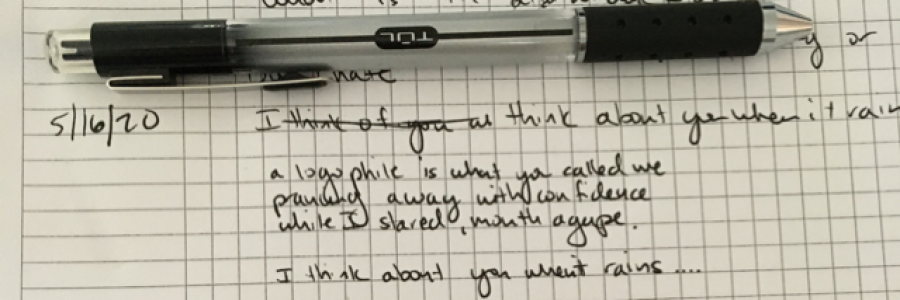 TUL
y or
hate
5/16/20 I think of you as think about you when it rain
a logophile is what you called me
away with confidence
while I stared, mouth agape.
I think about you when it rains....